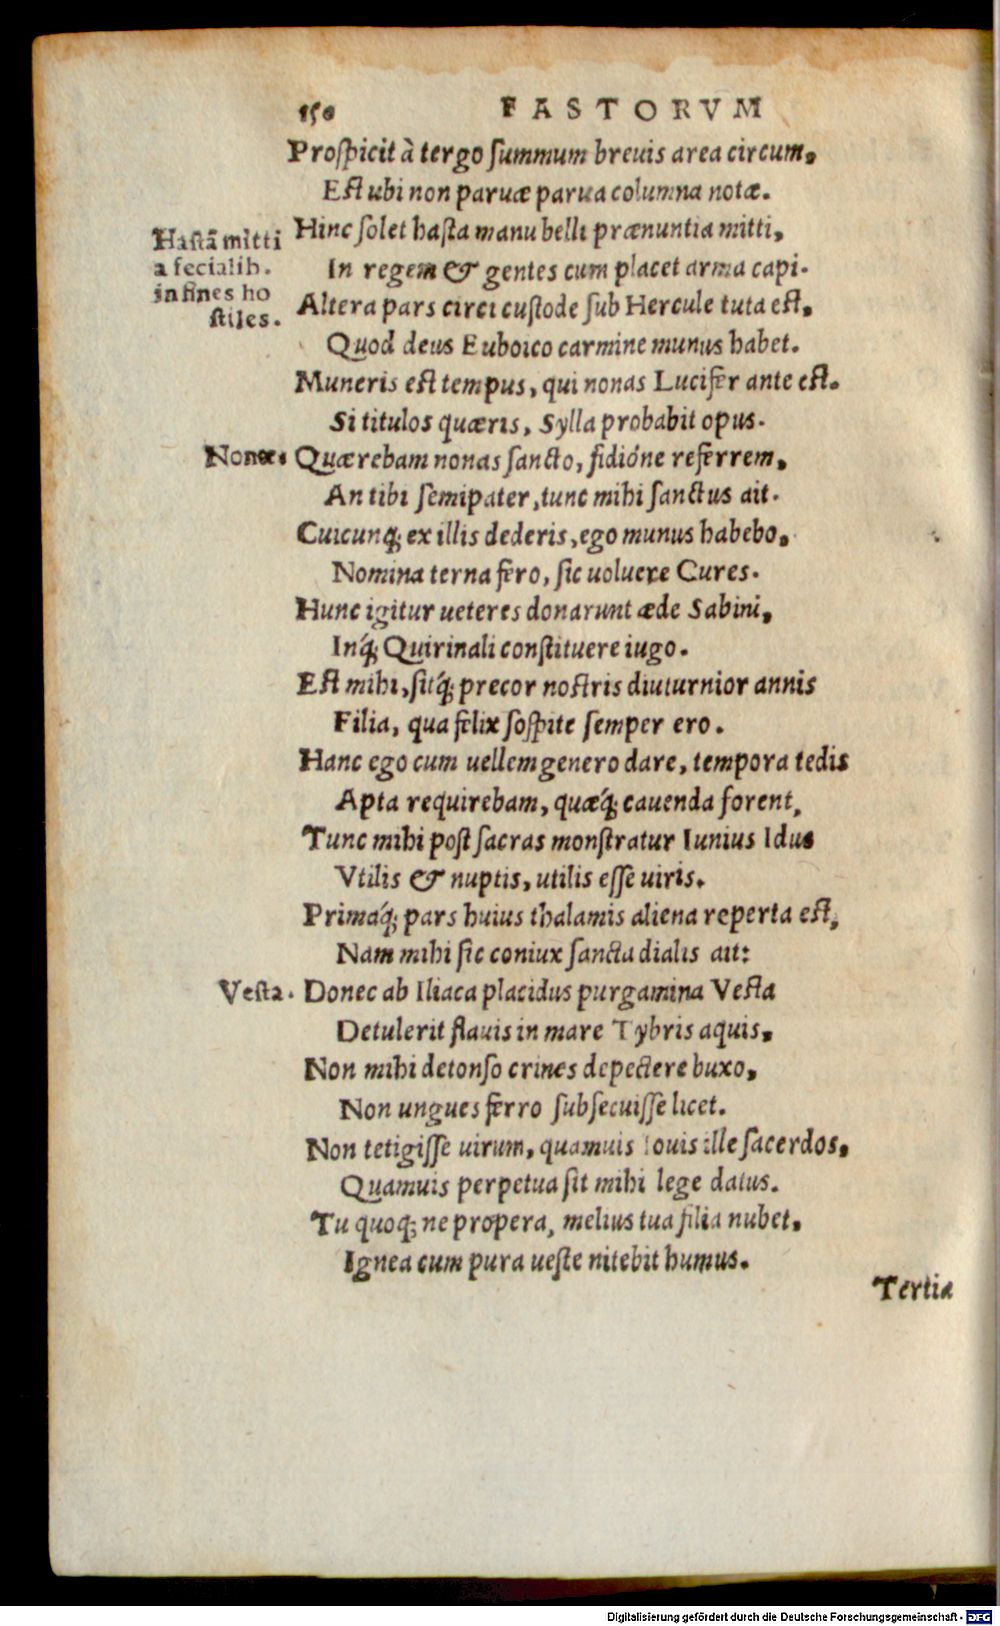 150 FASTORVM
Prospicit à tergo summum breuis area circum,
Est ubi non paruæ parua columna notæ.
Hastā mitti
a fecialib.
in fines ho
stiles.
Hinc solet hasta manu belli prænuntia mitti,
In regem & gentes cum placet arma capi.
Altera pars circi custode sub Hercule tuta est,
Quod deus Euboico carmine munus habet.
Muneris est tempus, qui nonas Lucifer ante est.
Si titulos quæris, Sylla probabit opus.
Nonæ. Quærebam nonas sancto, fidióne referrem,
An tibi semipater, tunc mihi sanctus ait.
Cuicunq; ex illis dederis, ego munus habebo,
Nomina terna fero, sic uoluere Cures.
Hunc igitur ueteres donarunt æde Sabini,
Inq́; Quirinali constituere iugo.
Est mihi, sitq́; precor nostris diuturnior annis
Filia, qua felix sospite semper ero.
Hanc ego cum uellem genero dare, tempora tedis
Apta requirebam, quæq́; cauenda forent,
Tunc mihi post sacras monstratur Iunius Idus
Vtilis & nuptis, utilis esse uiris.
Primaq́; pars huius thalamis aliena reperta est,
Nam mihi sic coniux sancta dialis ait:
Vesta. Donec ab Iliaca placidus purgamina Vesta
Detulerit flauis in mare Tybris aquis,
Non mihi detonso crines depectere buxo,
Non ungues ferro subsecuisse licet.
Non tetigisse uirum, quamuis Iouis ille sacerdos,
Quamuis perpetua sit mihi lege datus.
Tu quoq; ne propera, melius tua filia nubet,
Ignea cum pura ueste nitebit humus.
Tertia
Digitalisierung gefördert durch die Deutsche Forschungsgemeinschaft - DFG